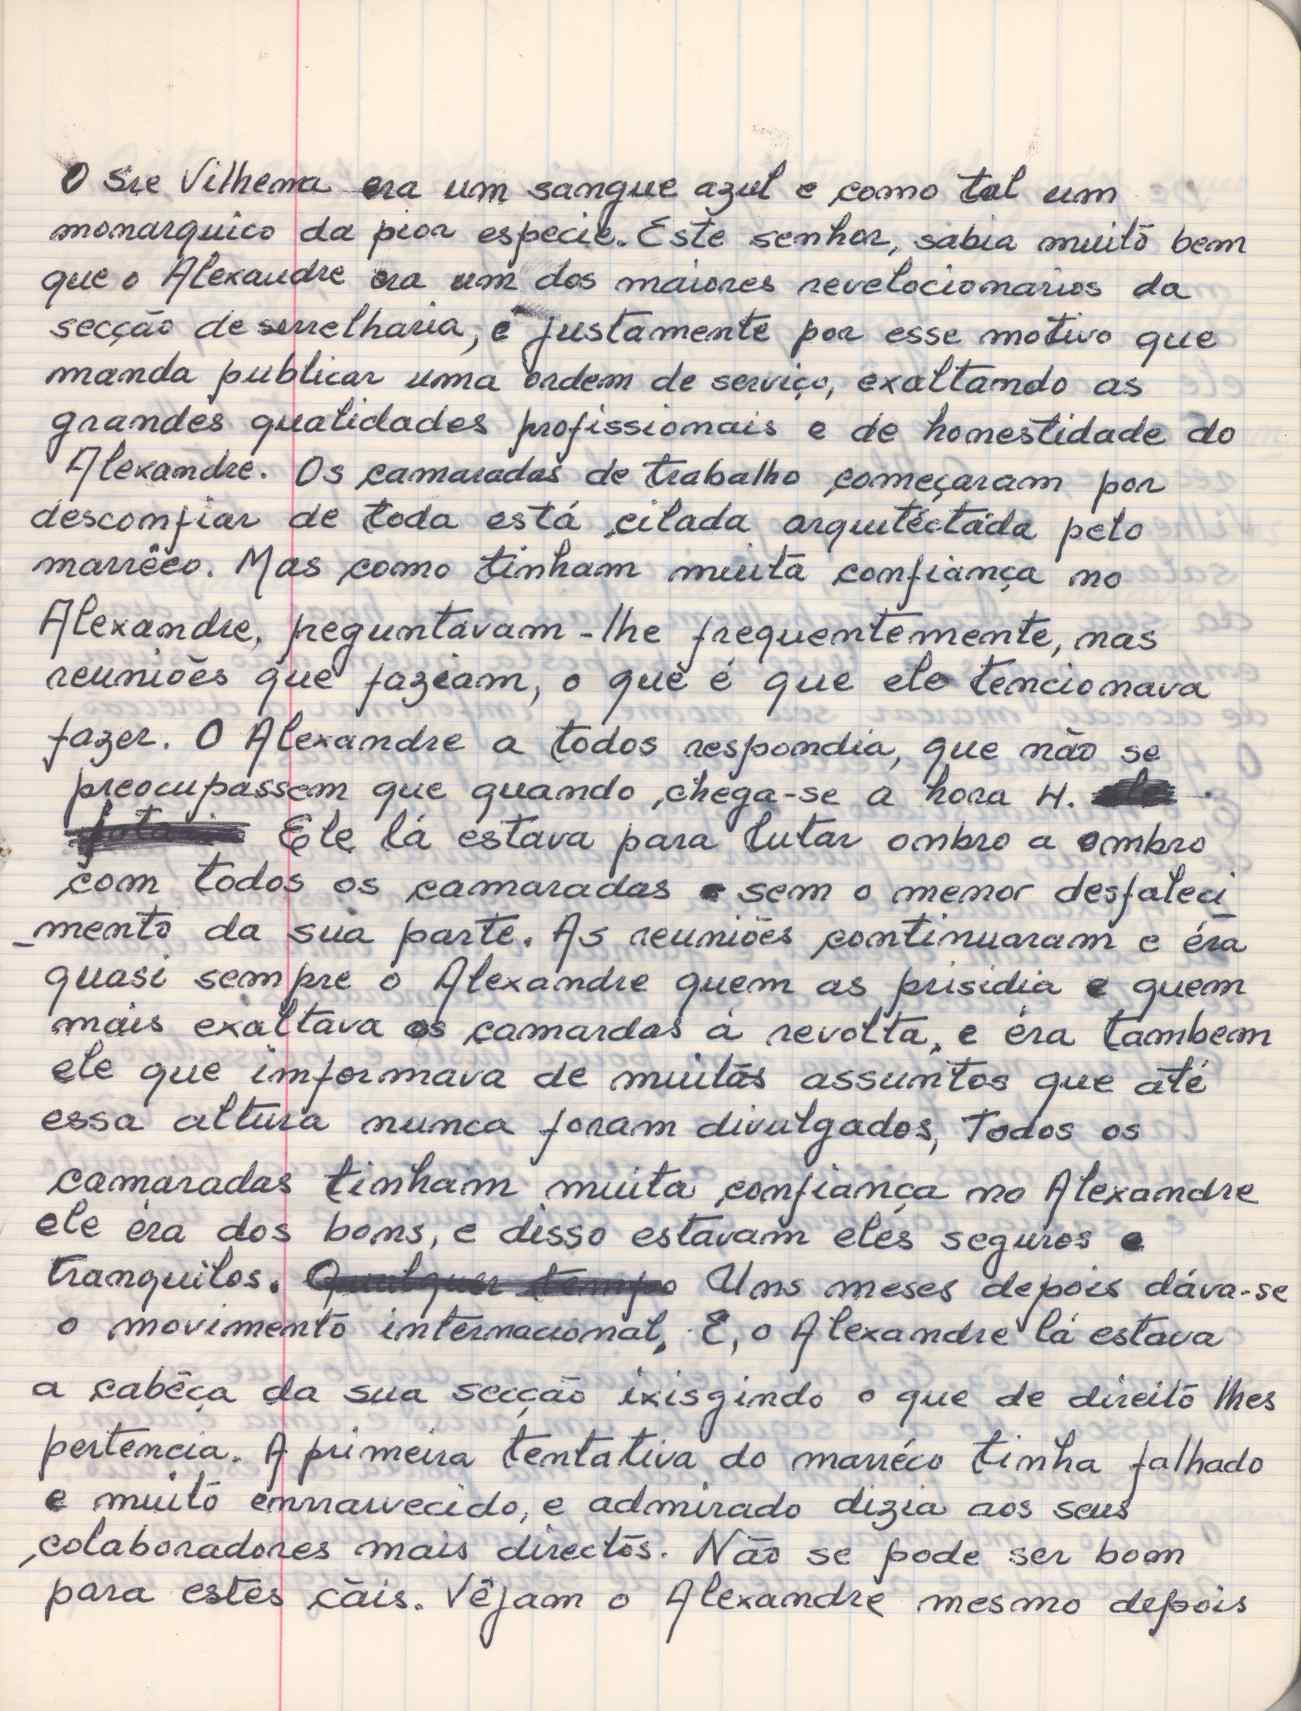 O Sre Vilhema era um sangue azul e como tal um
monarquico da pior espécie. Este senhor, sabia muito bem
que o Alexandre era um dos maiores revelocionarios da
secção de serrelharia, é justamente por esse motivo que
manda publicar uma ordem de serviço, exaltando as
grandes qualidades profissionais e de honestidade do
Alexandre. Os camaradas de trabalho começaram por
desconfiar de toda está cilada arquitéctada pelo
marrêco. Mas como tinham muita confiança no
Alexandre, preguntavam-lhe frequentemente, nas
reuniões que faziam, o que é que ele tencionava
fazer. O Alexandre a todos respondia, que não se
preocupassem que quando chega-se a hora H.
Ele lá estava para lutar ombro a ombro
com todos os camaradas e sem o menor desfaleci
-mento da sua parte. As reuniões continuaram e éra
quasi sempre o Alexandre quem as prisidia e quem
mais exaltava os camardas á revolta, e éra tambem
ele que informava de muitas assuntos que até
essa altura nunca foram divulgados, Todos os
camaradas tinham muita confiança no Alexandre
ele éra dos bons, e disso estavam elés seguros e
tranquilos. Qualquer tempo Uns meses depois dáva-se
o movimento internacional, E, o Alexandre lá estava
a cabêça da sua secção ixisgindo o que de direito lhes
pertencia. A primeira tentativa do marréco tinha falhado
e muito enrraivecido, e admirado dizia aos seus
colaboradores mais directos. Não se pode ser bom
para estes cãis. Vêjam o Alexandre mesmo depois